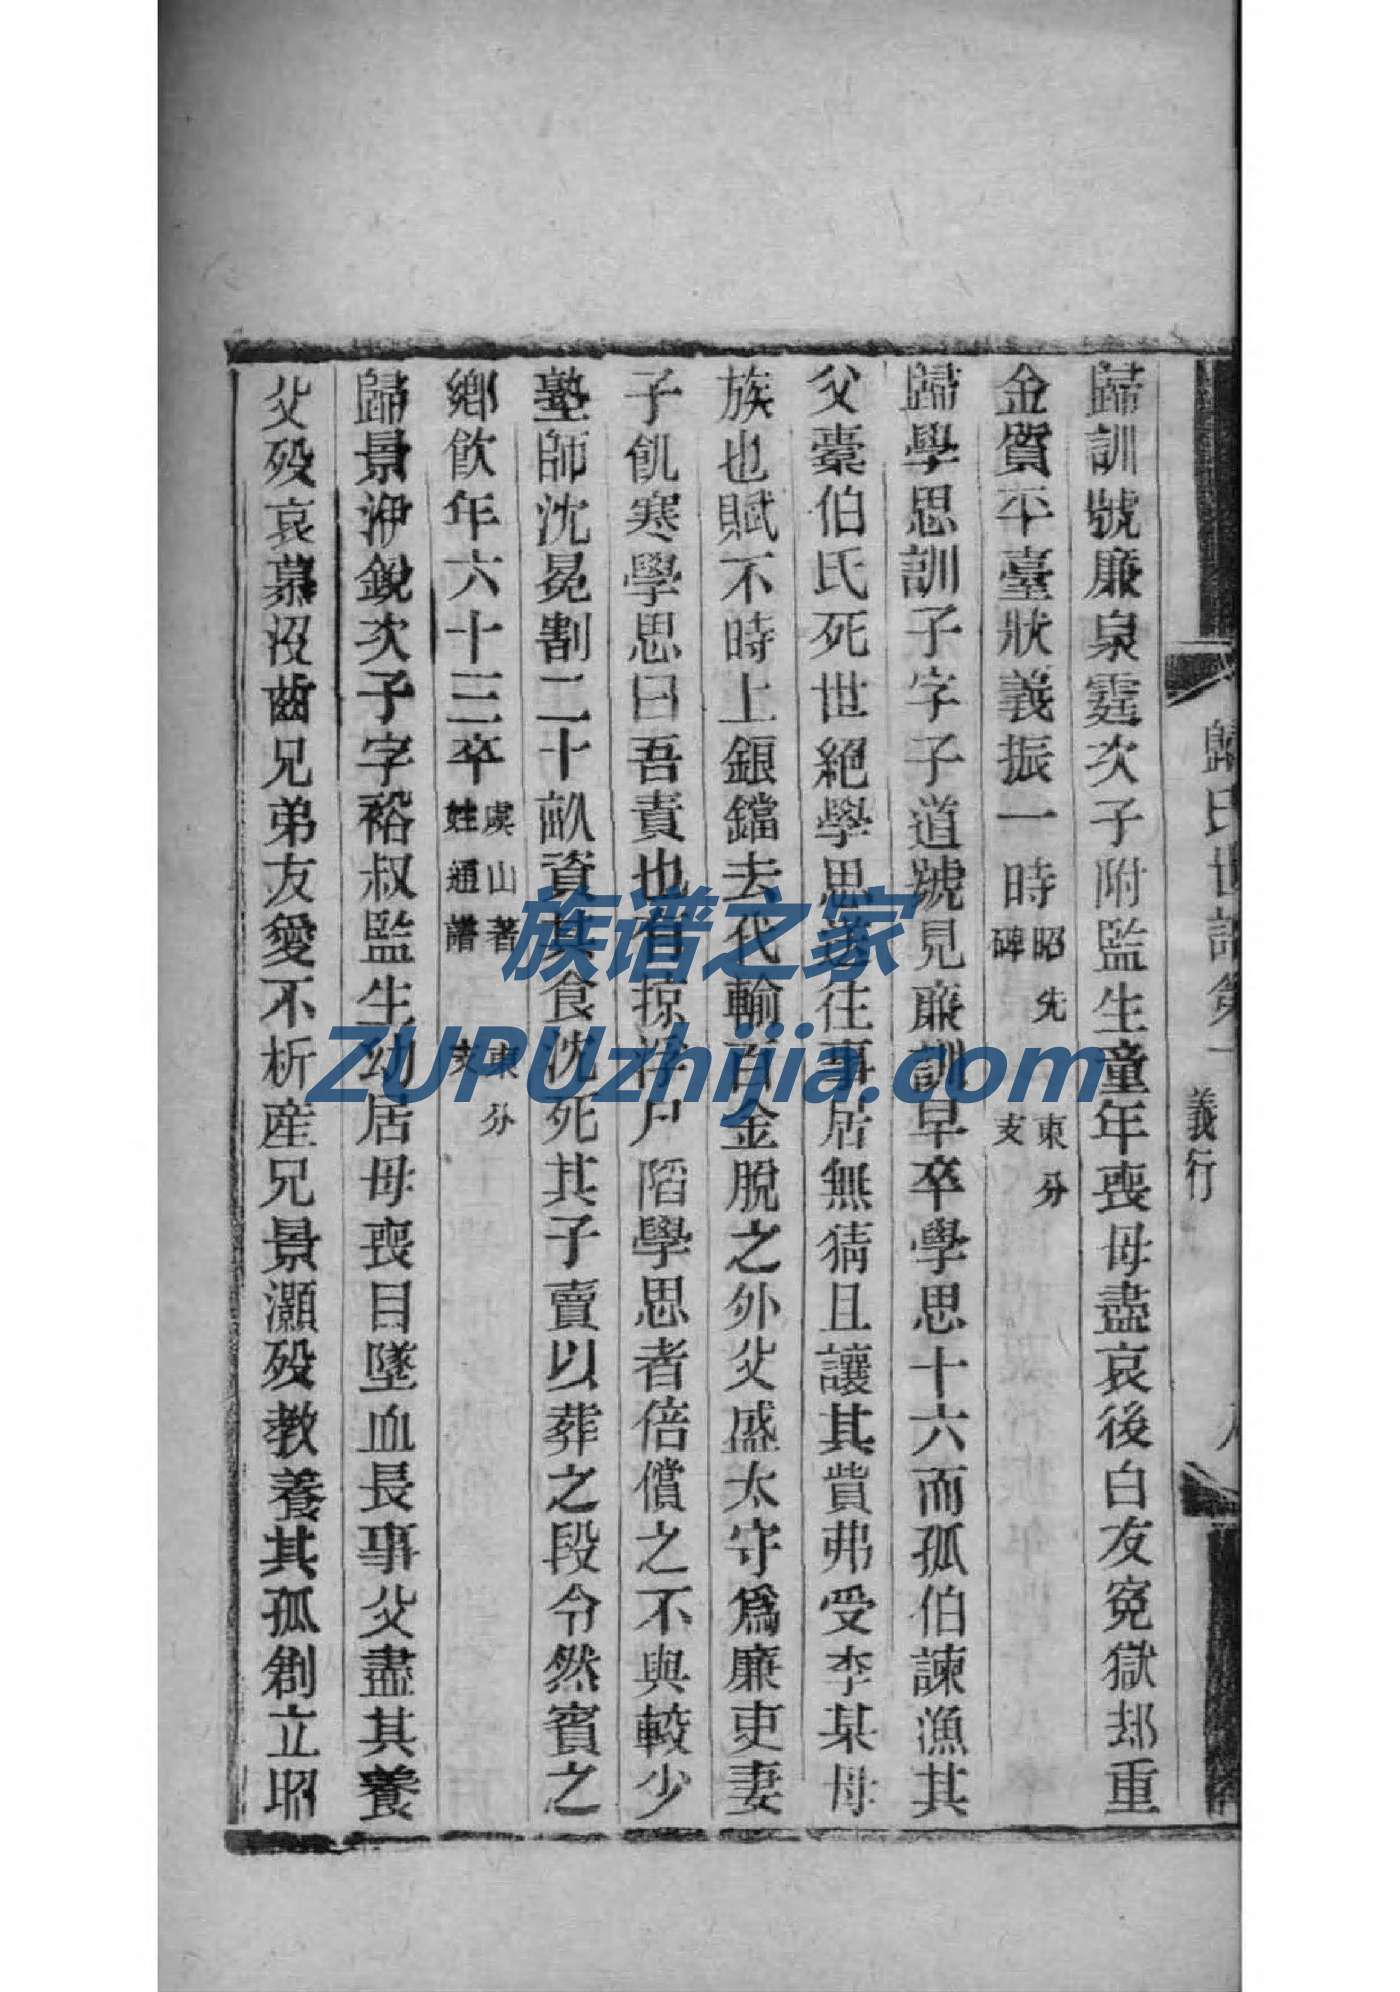 歸氏世譜
義行
歸訓號廉泉霆次子附監生童年喪母盡哀後白友寃獄却重
金質平臺狀義振一時昭先碑 東分支
歸學思訓子字子道號見廉訓早卒學思十六而孤伯諫漁其
父橐伯氏死世絕學思送往事居無猜且讓其貲弗受李某母
族也賦不時上鋃鐺去代輸百金脫之外父盛太守爲廉吏妻
子飢寒學思曰吾責也有掠浮尸陷學思者倍償之不與較少
塾師沈冕割二十畝資其食沈死其子賣以葬之段令然賓之
鄉飲年六十三卒虞山著姓通譜 東分支
歸景洢銳次子字裕叔監生幼居母喪目墜血長事父盡其養
父歿哀慕沒齒兄弟友愛不析産兄景灝歿教養其孤創立昭
族谱之家
ZUPUzhijia.com